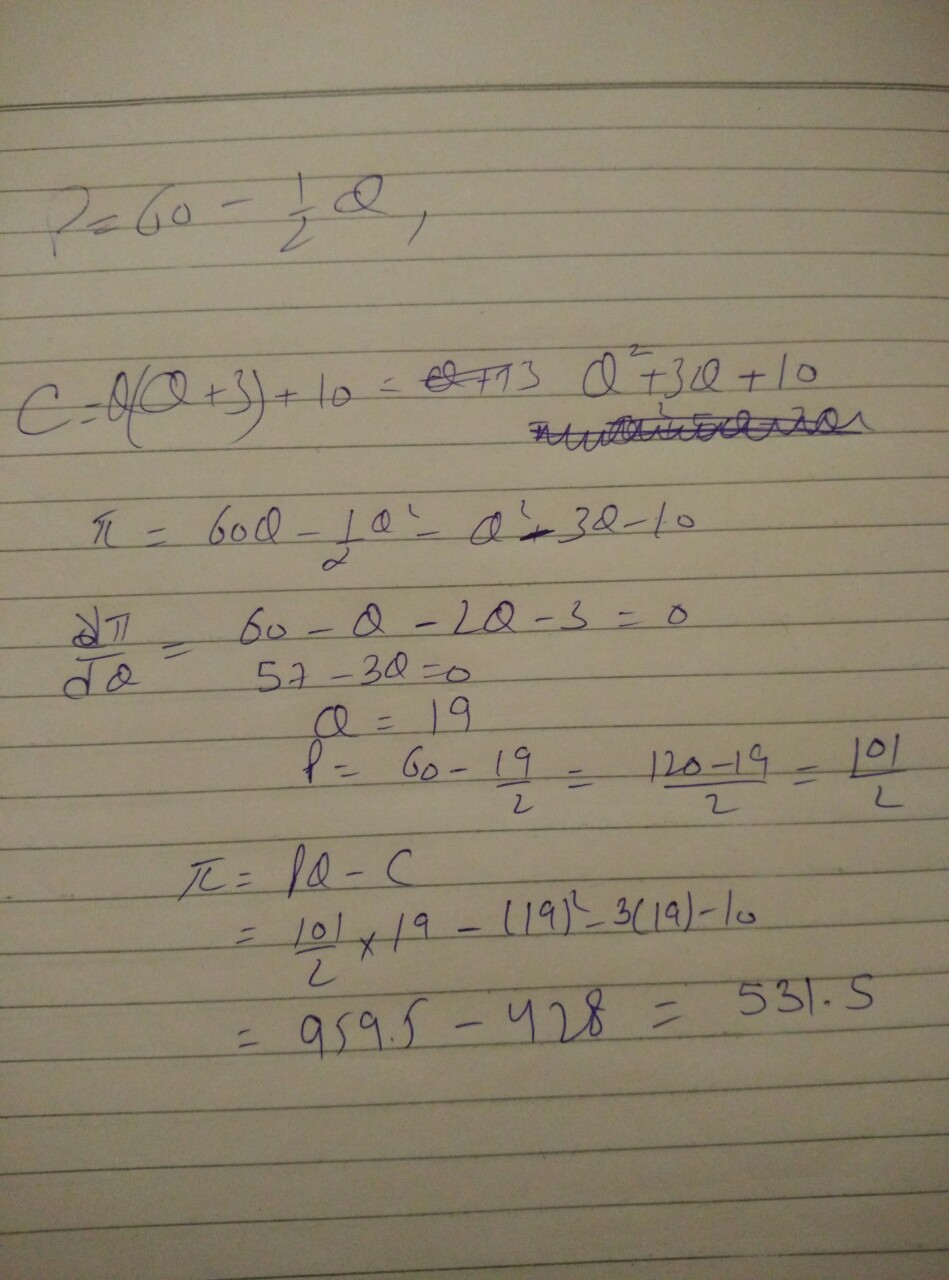 P = 60 - 1/2 Q,
C = Q(Q+3) + 10 = Q² + 3Q + 10
π = 60Q - 1/2 Q² - Q² - 3Q - 10
dπ/dQ = 60 - Q - 2Q - 3 = 0
57 - 3Q = 0
Q = 19
P = 60 - 19/2 = 120-19/2 = 101/2
π = PQ - C
= 101/2 × 19 - (19)² - 3(19) - 10
= 959.5 - 428 = 531.5